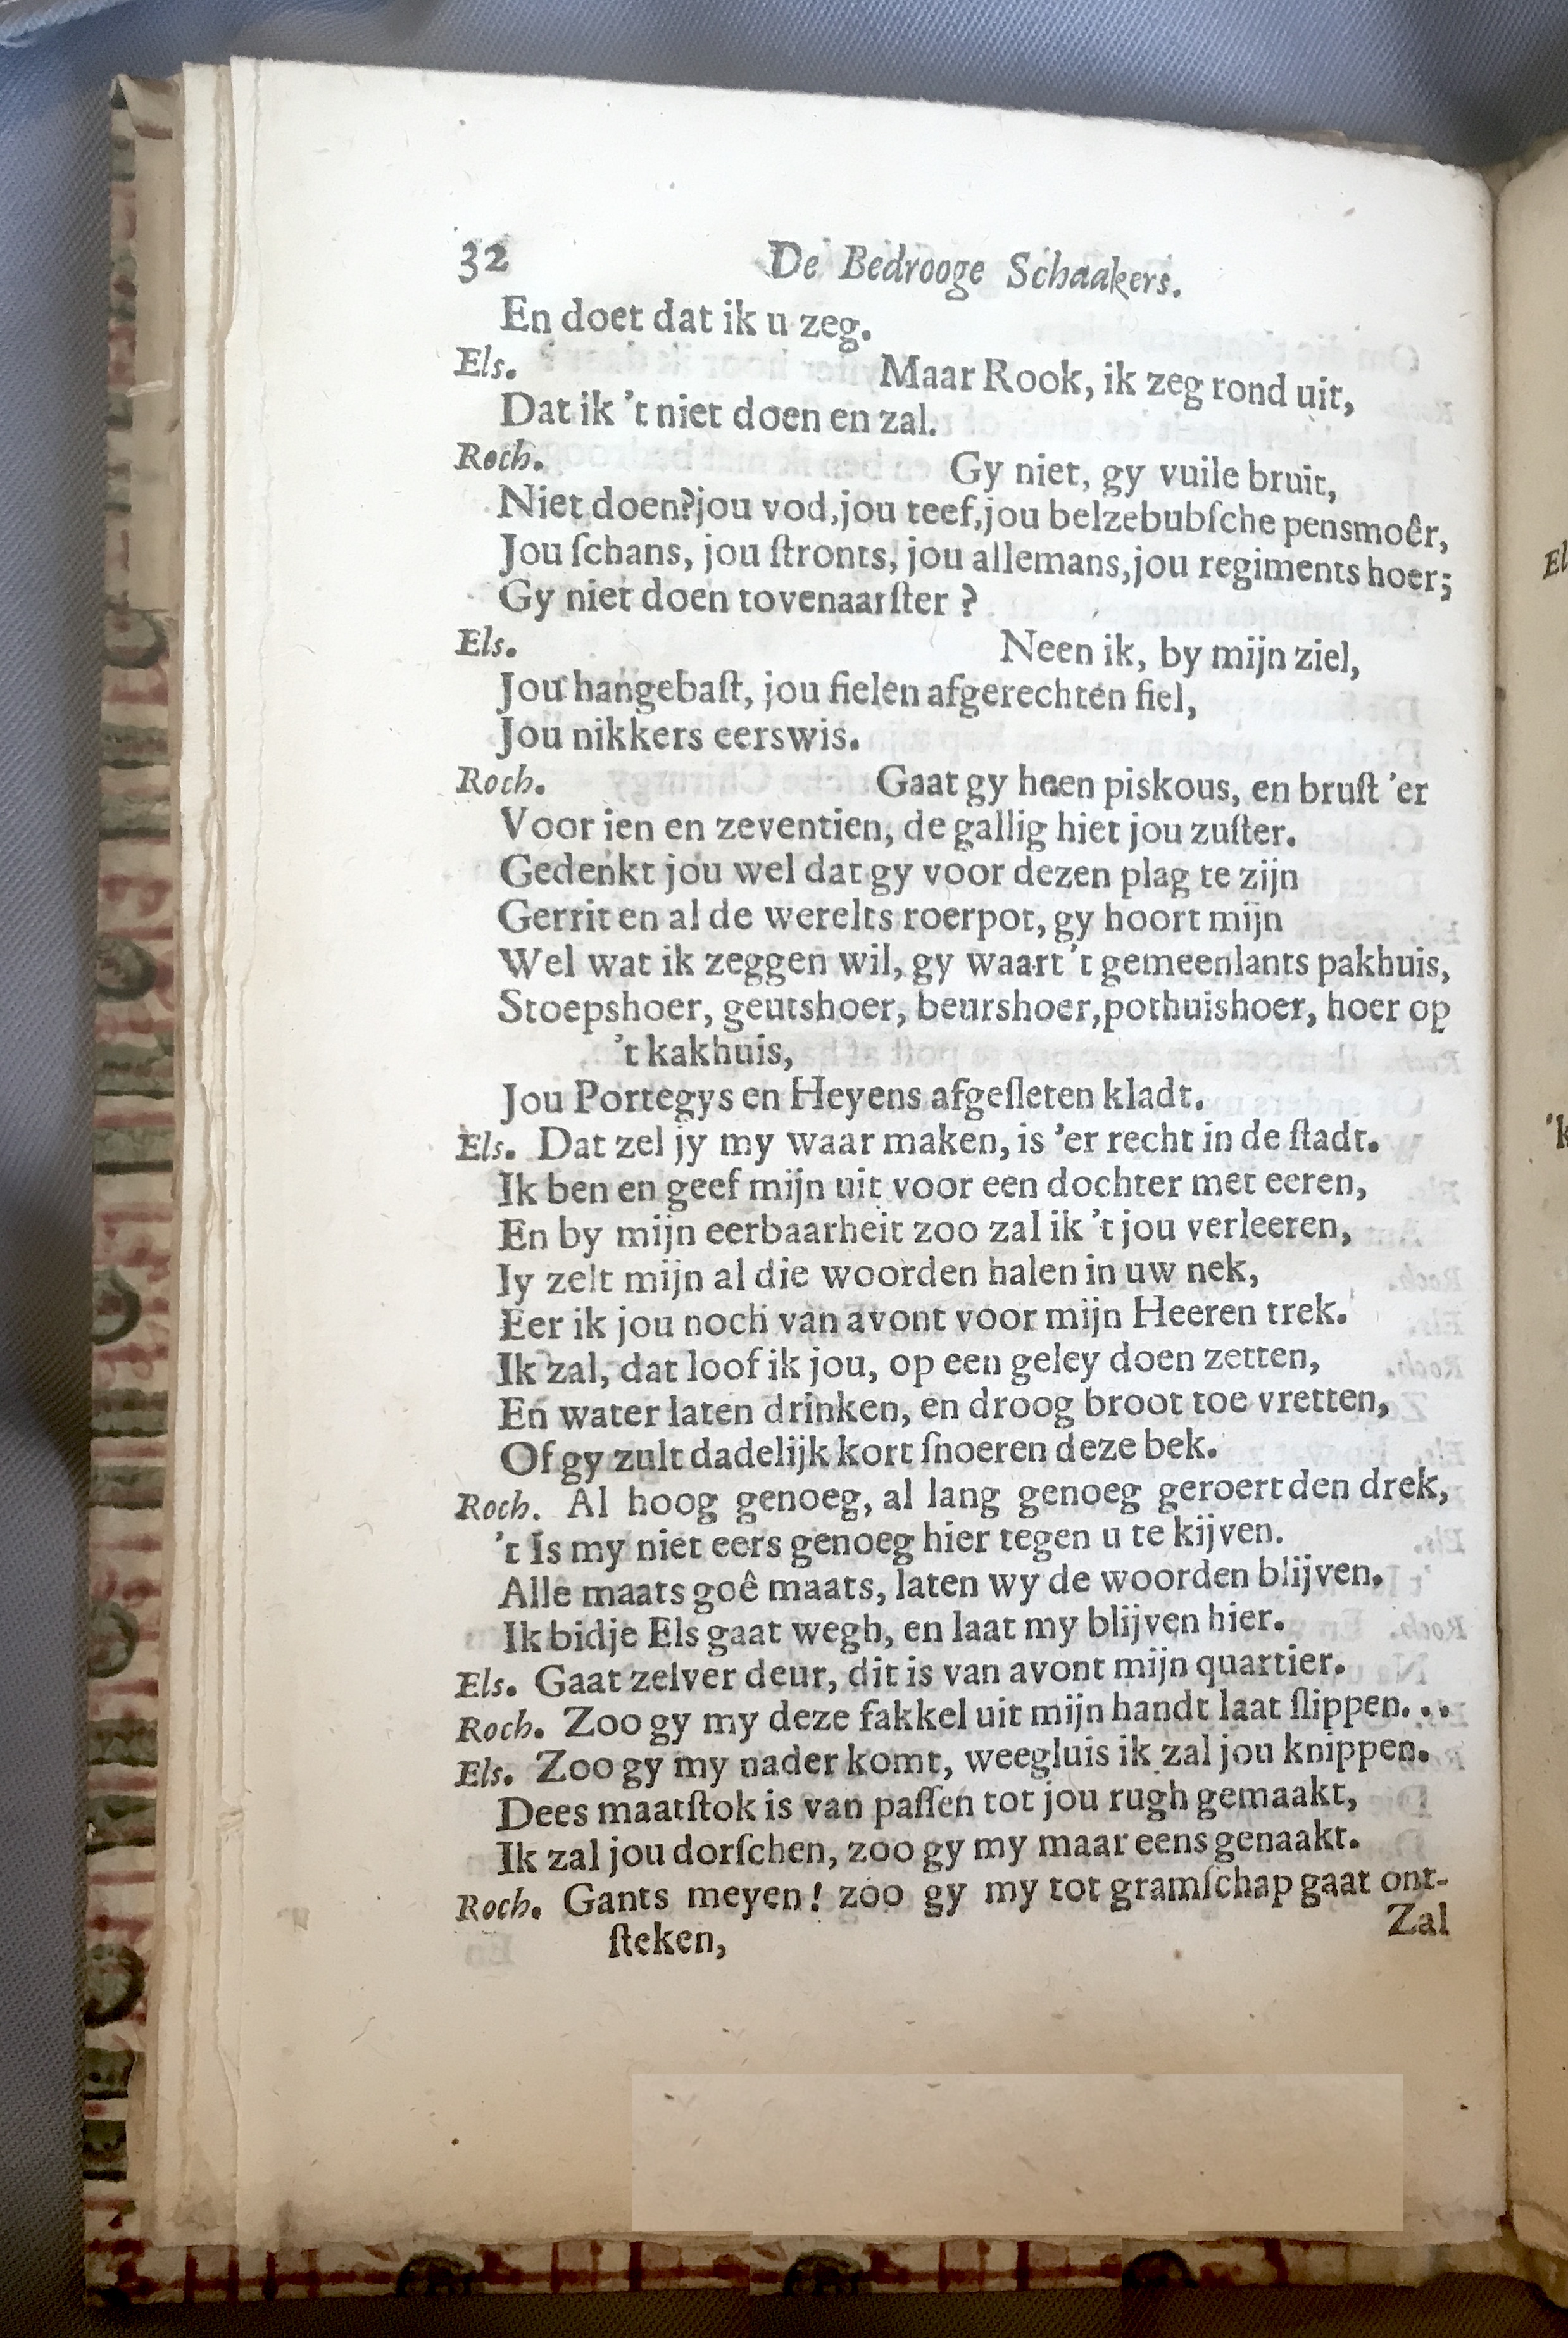 32 De Bedrooge Schaakers.
En doet dat ik u zeg.
Els. Maar Rook, ik zeg rond uit,
Dat ik 't niet doen en zal.
Roch. Gy niet, gy vuile bruit,
Niet doen?jou vod,jou teef,jou belzebubſche pensmoêr,
Jou ſchans, jou ſtronts, jou allemans,jou regiments hoer;
Gy niet doen tovenaarſter ?
Els. Neen ik, by mijn ziel,
Jou hangebaſt, jou fielen afgerechten fiel,
Jou nikkers eerswis.
Roch. Gaat gy heen piskous, en bruſt 'er
Voor ien en zeventien, de gallig hiet jou zuſter.
Gedenkt jou wel dat gy voor dezen plag te zijn
Gerrit en al de werelts roerpot, gy hoort mijn
Wel wat ik zeggen wil, gy waart 't gemeenlants pakhuis,
Stoepshoer, geutshoer, beurshoer,pothuishoer, hoer op
't kakhuis,
Jou Portegys en Heyens afgeſleten kladt.
Els. Dat zel jy my waar maken, is 'er recht in de ſtadt.
Ik ben en geef mijn uit voor een dochter met eeren,
En by mijn eerbaarheit zoo zal ik 't jou verleeren,
Iy zelt mijn al die woorden halen in uw nek,
Eer ik jou noch van avont voor mijn Heeren trek.
Ik zal, dat loof ik jou, op een geley doen zetten,
En water laten drinken, en droog broot toe vretten,
Of gy zult dadelijk kort ſnoeren deze bek.
Roch. Al hoog genoeg, al lang genoeg geroert den drek,
't Is my niet eers genoeg hier tegen u te kijven.
Alle maats goê maats, laten wy de woorden blijven.
Ik bidje Els gaat wegh, en laat my blijven hier.
Els. Gaat zelver deur, dit is van avont mijn quartier.
Roch. Zoo gy my deze fakkel uit mijn handt laat ſlippen...
Els. Zoo gy my nader komt, weegluis ik zal jou knippen.
Dees maatſtok is van paſſen tot jou rugh gemaakt,
Ik zal jou dorſchen, zoo gy my maar eens genaakt.
Roch. Gants meyen! zoo gy my tot gramſchap gaat ont-
ſteken,
Zal
El
'k